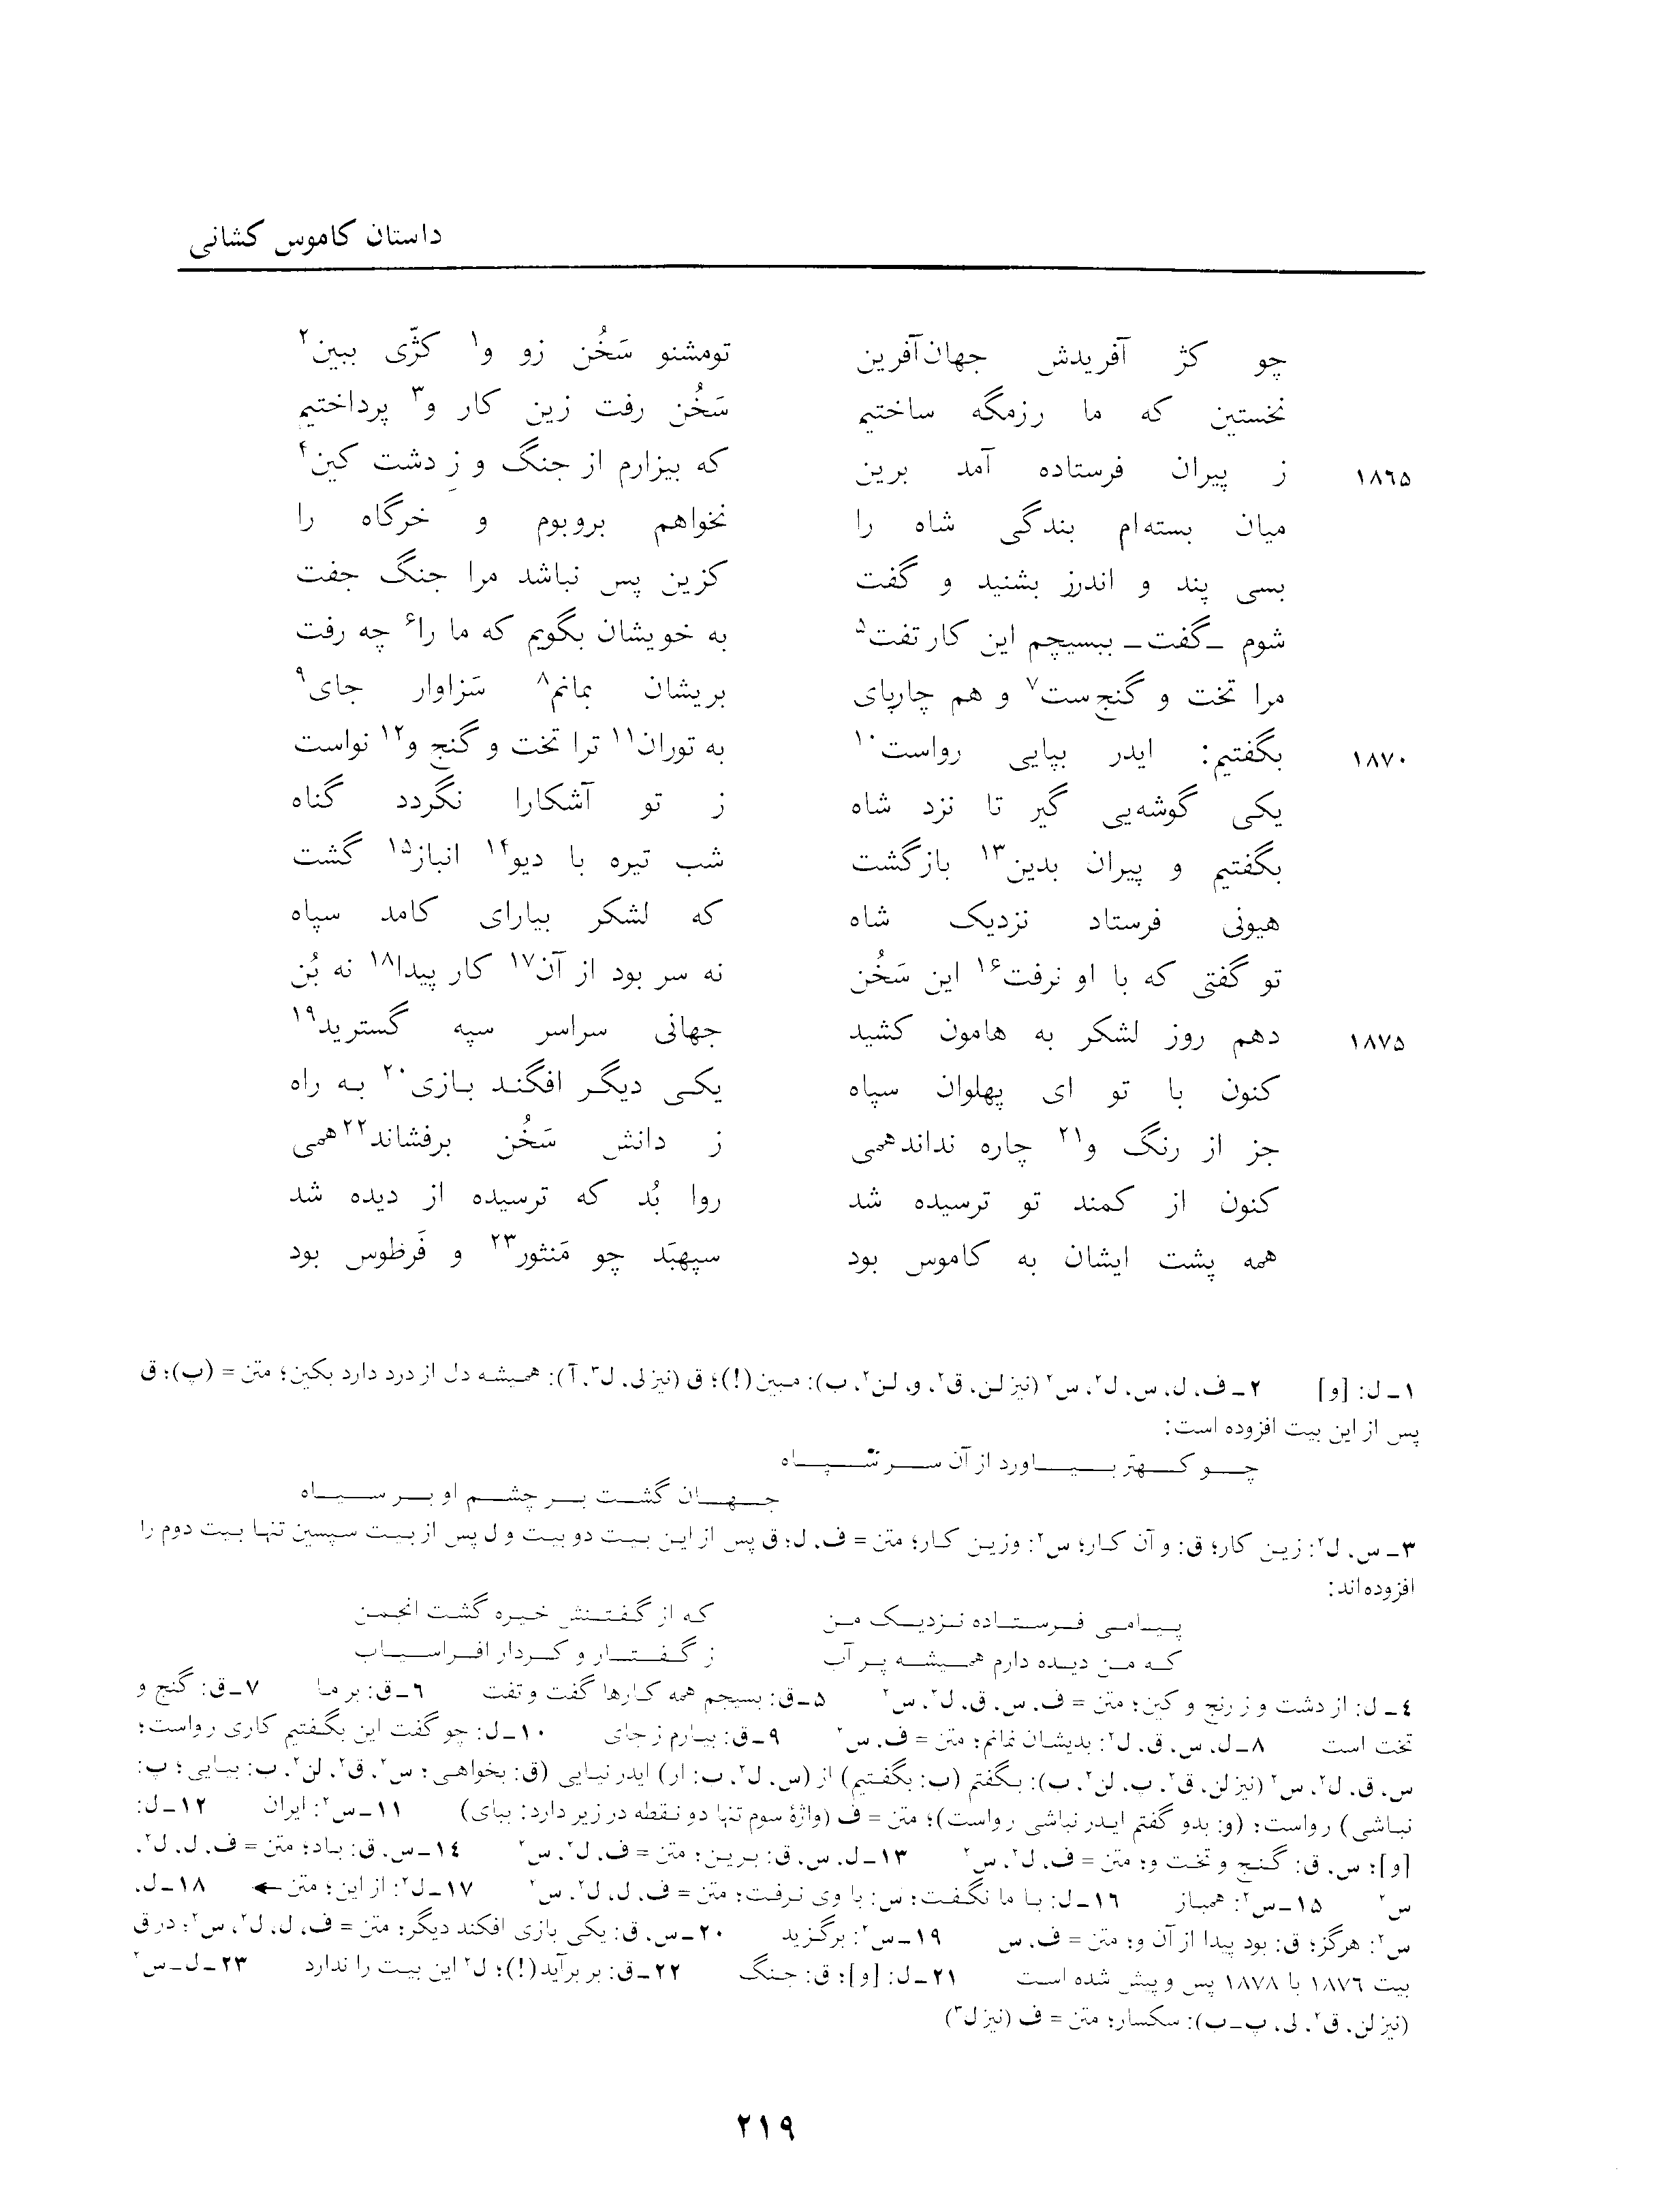 داستان کاموس کشانی
چو کژ آفریدش جهان‌آفرین تومشنو سَخُن زو و۱ کژّی ببین۲
نخستین که ما رزمگه ساختیم سَخُن رفت زین کار و۳ پرداختیم
۱۸٦۵ ز پیران فرستاده آمد برین که بیزارم از جنگ و ز دشت کین۴
میان بسته‌ام بندگی شاه را نخواهم بروبوم و خرگاه را
بسی پند و اندرز بشنید و گفت کزین پس نباشد مرا جنگ جفت
شوم ـ گفت ـ ببسیچم این کار تفت۵ به خویشان بگویم که ما را۶ چه رفت
مرا تخت و گنج‌ست۷ و هم چارپای بریشان بمانم۸ سَزاوار جای۹
۱۸۷۰ بگفتیم: ایدر بپایی رواست۱۰ به توران۱۱ ترا تخت و گنج و۱۲ نواست
یکی گوشه‌یی گیر تا نزد شاه ز تو آشکارا نگردد گناه
بگفتیم و پیران بدین۱۳ بازگشت شب تیره با دیو۱۴ انباز۱۵ گشت
هیونی فرستاد نزدیک شاه که لشکر بیارای کامد سپاه
تو گفتی که با او نرفت۱۶ این سَخُن نه سر بود از آن۱۷ کار پیدا۱۸ نه بُن
۱۸۷۵ دهم روز لشکر به هامون کشید جهانی سراسر سپه گسترید۱۹
کنون با تو ای پهلوان سپاه یکی دیگر افگند بازی۲۰ به راه
جز از رنگ و۲۱ چاره نداند همی ز دانش سَخُن برفشاند۲۲ همی
کنون از کمند تو ترسیده شد روا بُد که ترسیده از دیده شد
همه پشت ایشان به کاموس بود سپهبَد چو مَنثور۲۳ و فَرطوس بود
۱ـ ل: [و] ۲ـ ف، ل، س، ل۲، س۲ (نیز لن، ق۲، و، لن۲، ب): مبین(!)؛ ق (نیز لی، ل۳، آ): همیشه دل از درد دارد بکین؛ متن = (پ)؛ ق
پس از این بیت افزوده است:
چو کهتر بیاورد از آن سر سپاه
جهان گشت بر چشم او بر سیاه
۳ـ س، ل۲: زین کار؛ ق: و آن کار؛ س۲: وزین کار؛ متن = ف، ل؛ ق پس از این بیت دو بیت و ل پس از بیت سپسین تنها بیت دوم را
افزوده‌اند:
پیامی فرستاده نزدیک من که از گفتنش خیره گشت انجمن
که من دیده دارم همیشه پر آب ز گفتار و کردار افراسیاب
٤ـ ل: از دشت و ز رنج و کین؛ متن = ف، س، ق، ل۲، س۲ ۵ـ ق: بسیجم همه کارها گفت و تفت ٦ـ ق: بر ما ۷ـ ق: گنج و
تخت است ۸ـ ل، س، ق، ل۲: بدیشان نمانم؛ متن = ف، س۲ ۹ـ ق: بیارم ز جای ۱۰ـ ل: چو گفت این بگفتیم کاری رواست؛
س، ق، ل۲، س۲ (نیز لن، ق۲، پ، لن۲، ب): بگفتم (ب: بگفتیم) از (س، ل۲، ب: ار) ایدر نیایی (ق: بخواهی؛ س۲، ق۲، لن۲، ب: بیایی؛ پ:
نباشی) رواست؛ (و: بدو گفتم ایدر نباشی رواست)؛ متن = ف (واژهٔ سوم تنها دو نقطه در زیر دارد: بپای) ۱۱ـ س۲: ایران ۱۲ـ ل:
[و]؛ س، ق: گنج و تخت و؛ متن = ف، ل۲، س۲ ۱۳ـ ل، س، ق: برین؛ متن = ف، ل۲، س۲ ۱٤ـ س، ق: باد؛ متن = ف، ل، ل۲،
س۲ ۱۵ـ س۲: همباز ۱٦ـ ل: با ما نگفت؛ س: با وی نرفت؛ متن = ف، ل، ل۲، س۲ ۱۷ـ ل۲: از این؛ متن ← ۱۸ـ ل،
س۲: هرگز؛ ق: بود پیدا از آن و؛ متن = ف، س ۱۹ـ س۲: برگزید ۲۰ـ س، ق: یکی بازی افکند دیگر؛ متن = ف، ل، ل۲، س۲؛ در ق
بیت ۱۸۷٦ با ۱۸۷۸ پس و پیش شده است ۲۱ـ ل: [و]؛ ق: جنگ ۲۲ـ ق: بر برآید(!)؛ ل۲ این بیت را ندارد ۲۳ـ ل ـ س۲
(نیز لن، ق۲، لی، پ ـ ب): سکسار؛ متن = ف (نیز ل۳)
۲۱۹